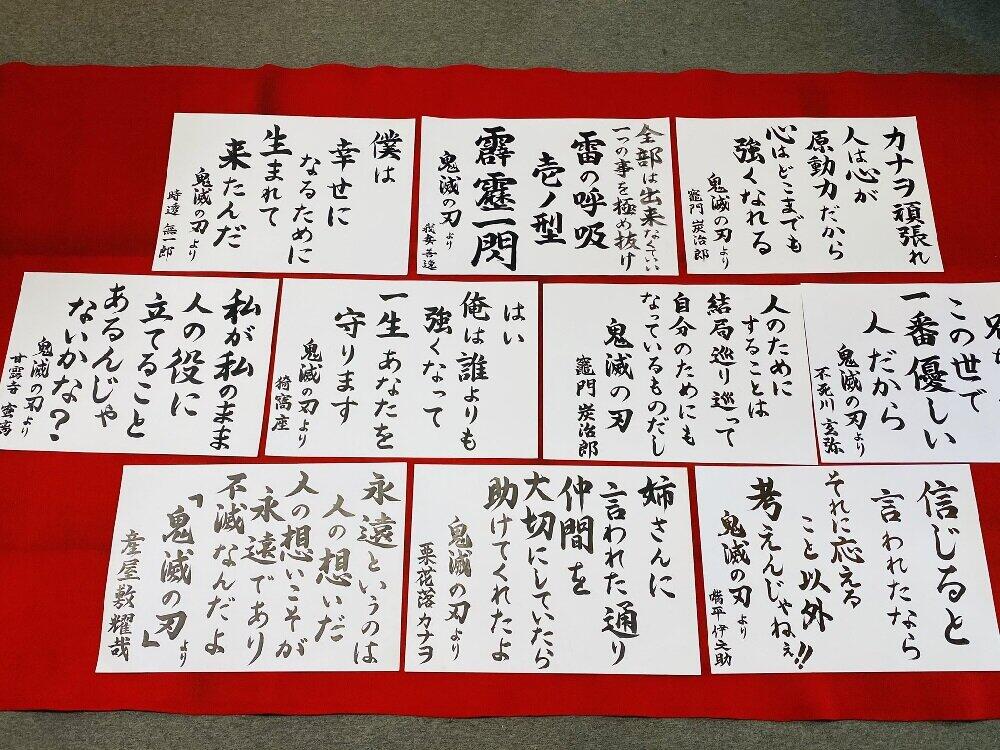 カナヲ頑張れ
人は心が
原動力だから
心はどこまでも
強くなれる
鬼滅の刃より
竈門 炭治郎
全部は出来なくていい
一つの事を極め抜け
雷の呼吸
壱ノ型
霹靂一閃
鬼滅の刃より
我妻善逸
僕は
幸せに
なるために
生まれて
来たんだ
鬼滅の刃より
時透 無一郎
この世で
一番優しい
人だから
鬼滅の刃より
不死川 玄弥
人のために
することは
結局巡り巡って
自分のためにも
なっているものだし
鬼滅の刃
竈門 炭治郎
はい
俺は誰よりも
強くなって
一生あなたを
守ります
鬼滅の刃より
猗窩座
私が私のまま
人の役に
立てること
あるんじゃ
ないかな?
鬼滅の刃より
甘露寺 蜜璃
信じると
言われたなら
それに応える
こと以外
考えんじゃねぇ!!
鬼滅の刃より
嘴平伊之助
姉さんに
言われた通り
仲間を
大切にしていたら
助けてくれたよ
鬼滅の刃より
栗花落カナヲ
永遠というのは
人の想いだ
人の想いこそが
永遠であり
不滅なんだよ
「鬼滅の刃」より
産屋敷耀哉